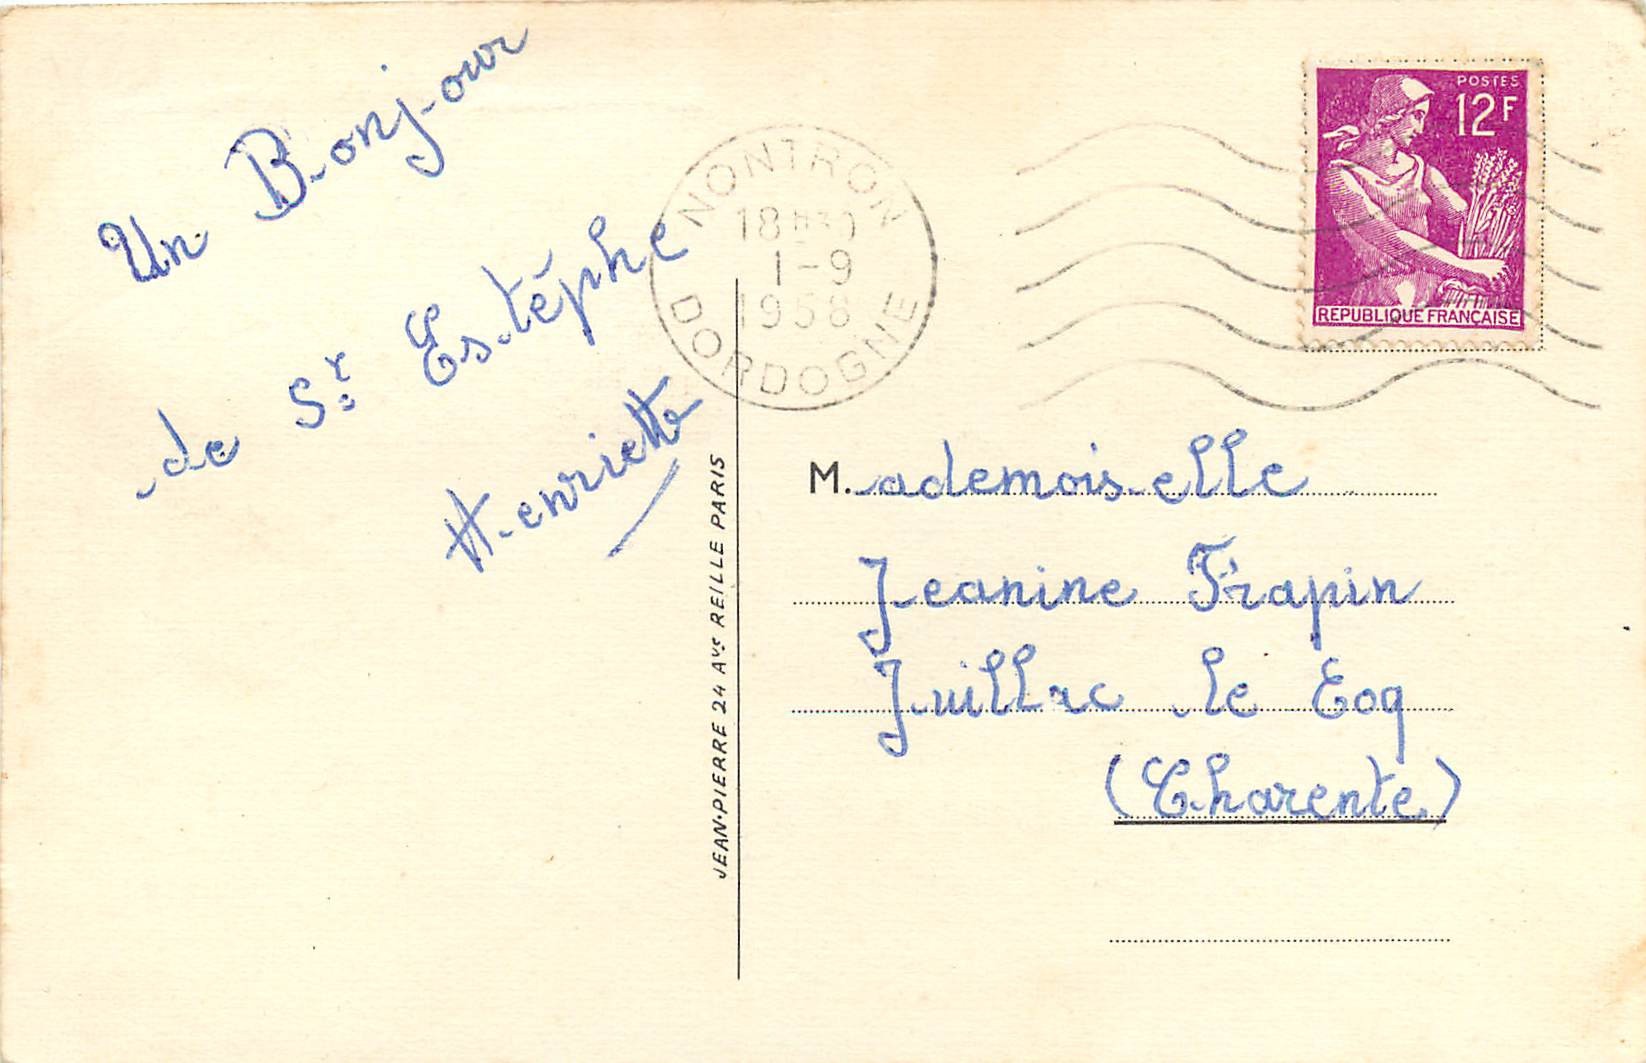 Un Bonjour
de St Estéphe
Henriette
JEAN-PIERRE 24 AVE REILLE PARIS
NONTRON
18H30
1-9
1958
DORDOGNE
POSTES
12F
REPUBLIQUE FRANÇAISE
M.ademoiselle
Jeanine Frapin
Juillac le Coq
(Charente)